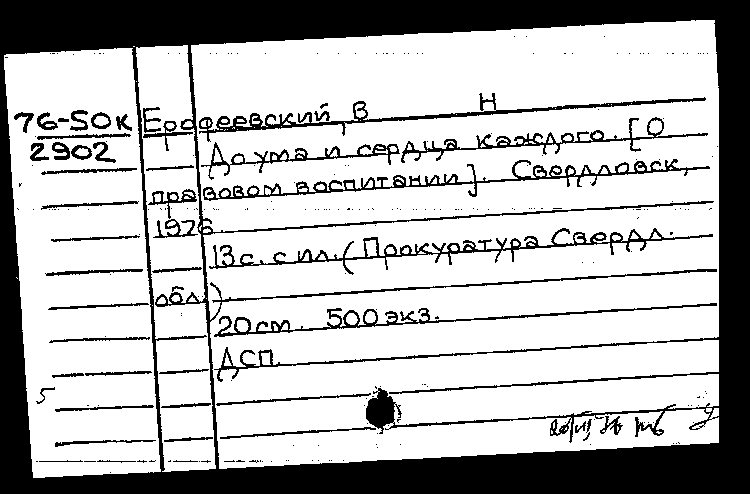 76-50к Ерофеевский, В Н
2902 До ума и сердца каждого. [О
правовом воспитании]. Свердловск,
1976
13 с. с ил. (Прокуратура Свердл.
обл.).
20 см. 500 экз.
ДСП
5